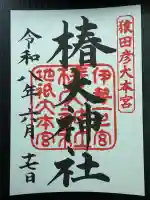 猿田彦大本宮
伊勢一之宮
椿大神社
地祇大本宮
令和八年 月 日